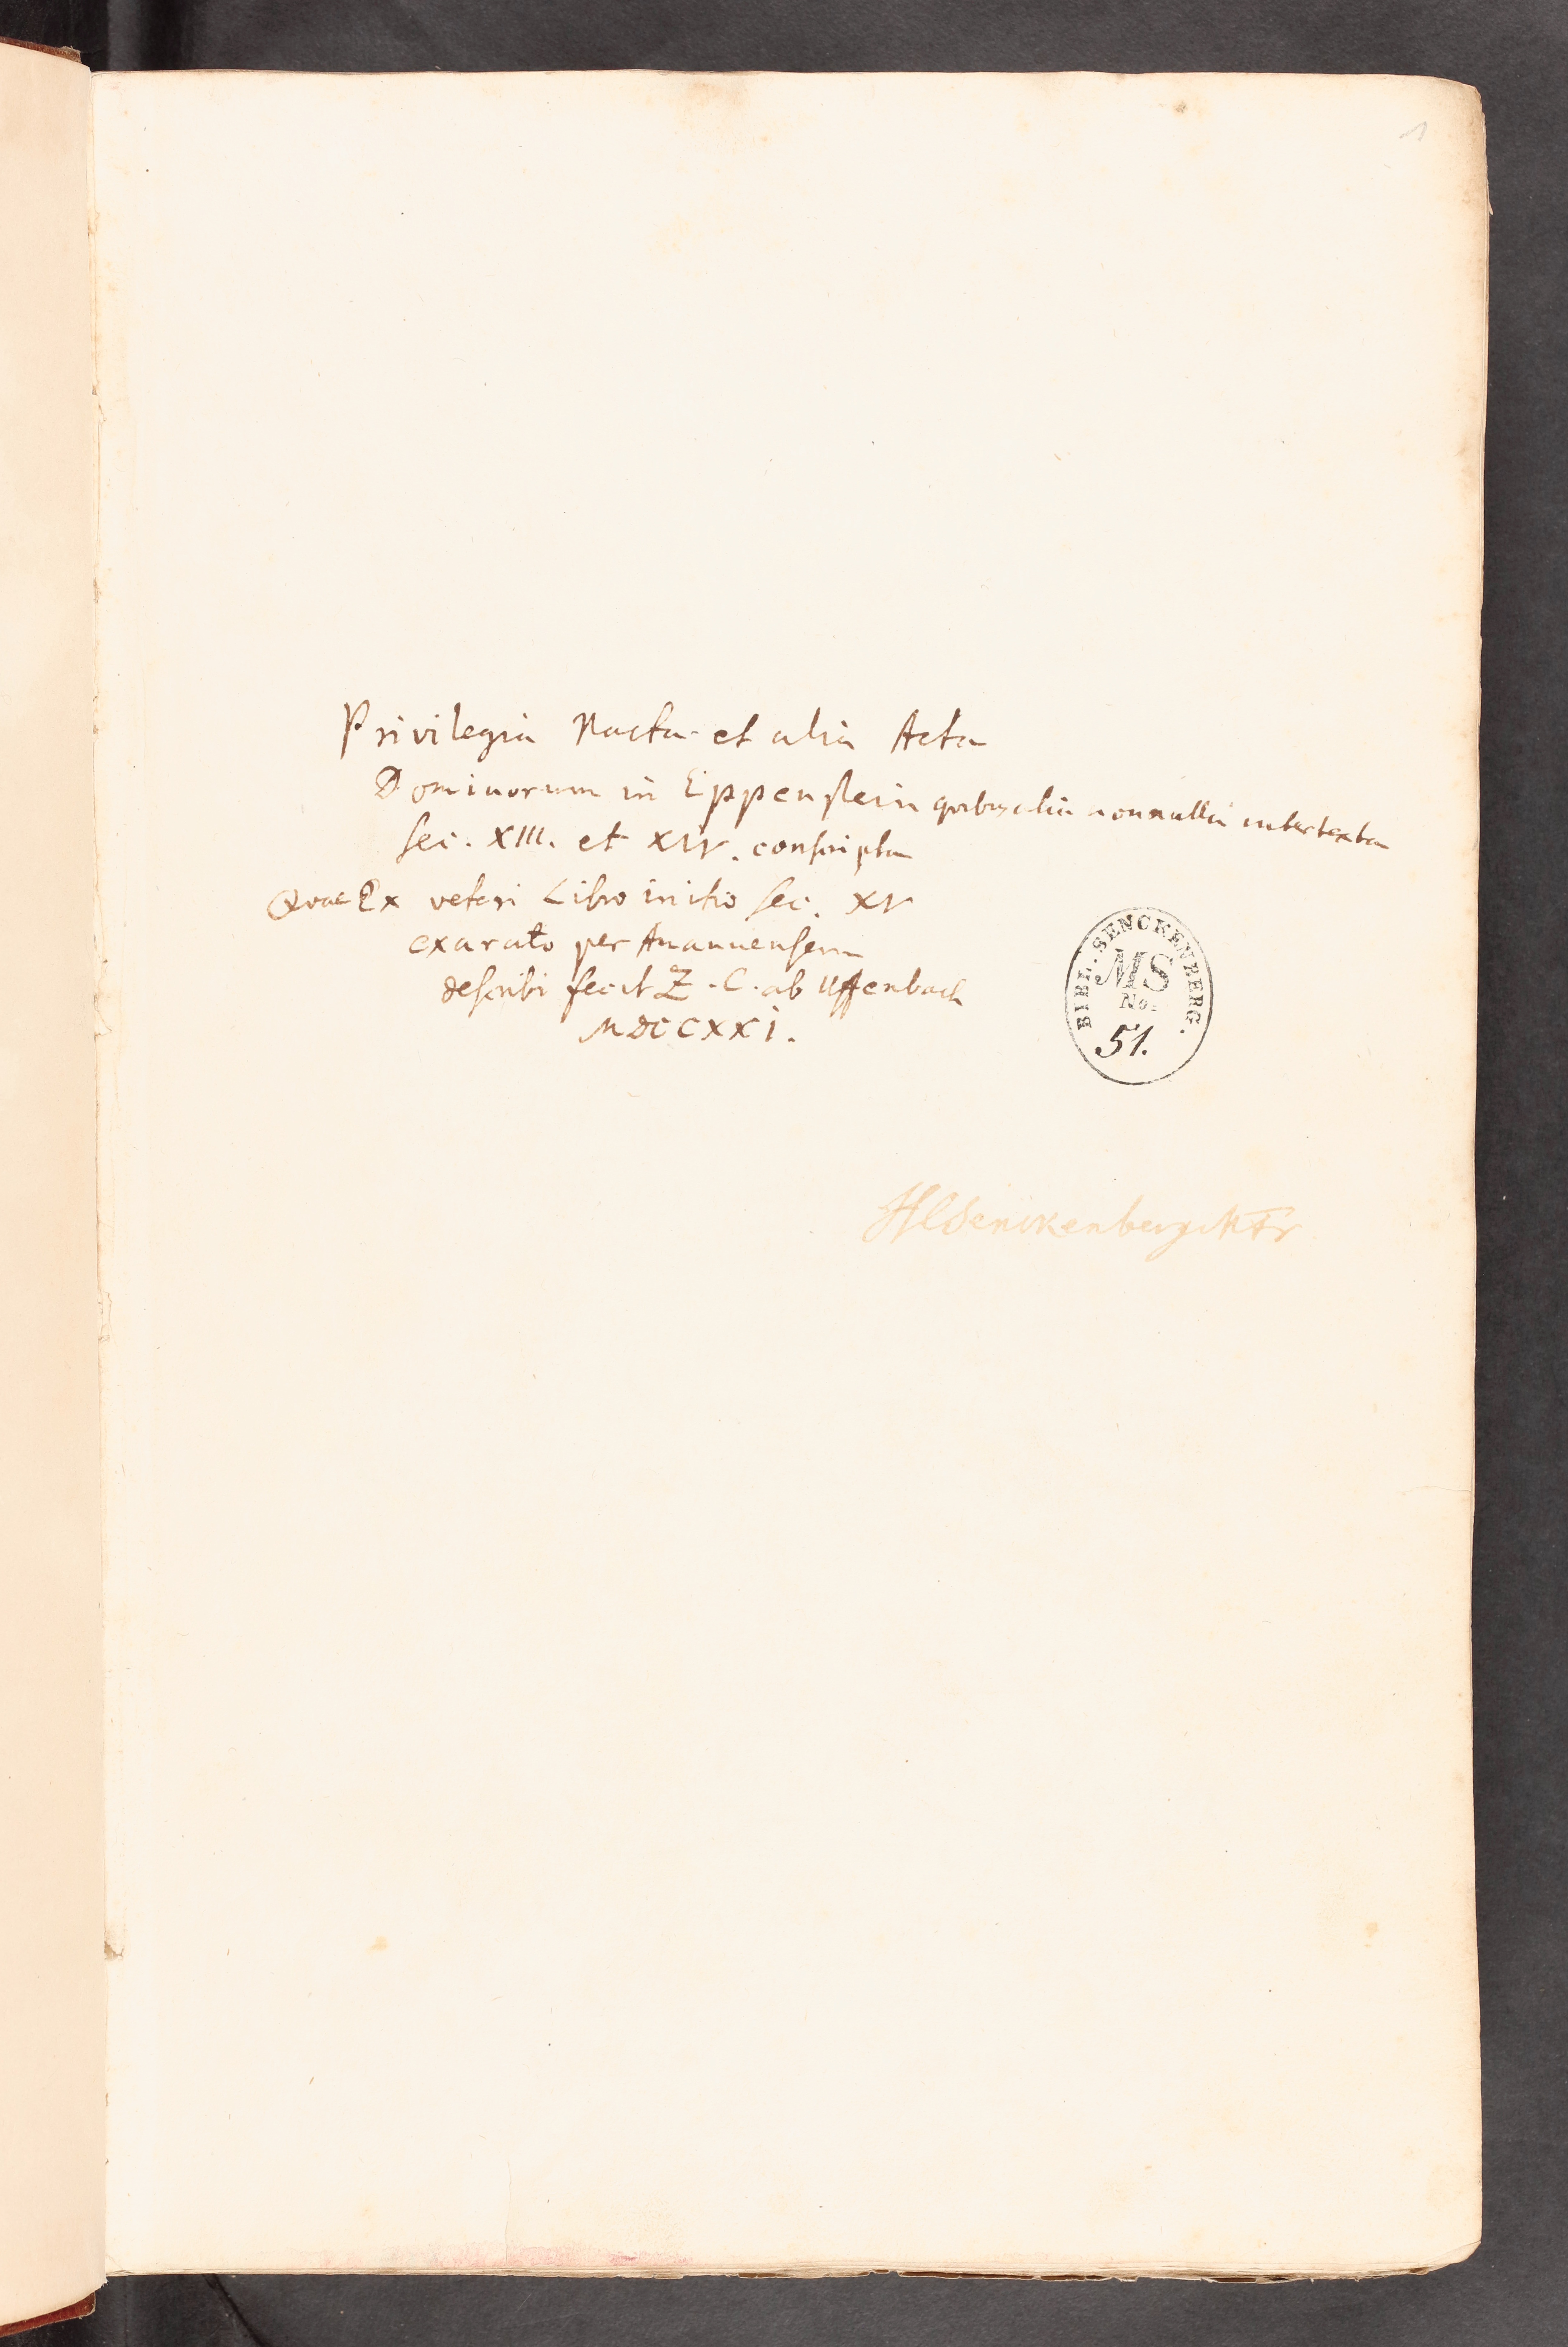 1
Privilegia Pacta et alia Acta
Dominorum in Eppenstein quibus alia nonnulla intertexta
sec. XIII. et XIV. conscripta
Quae Ex veteri Libro initio sec. XV
exarato per Amanuensem
describi fecit Z. C. ab Uffenbach
MDCCXXI.
BIBL. SENCKENBERG.
MS
No.
51.
HCSenckenberg